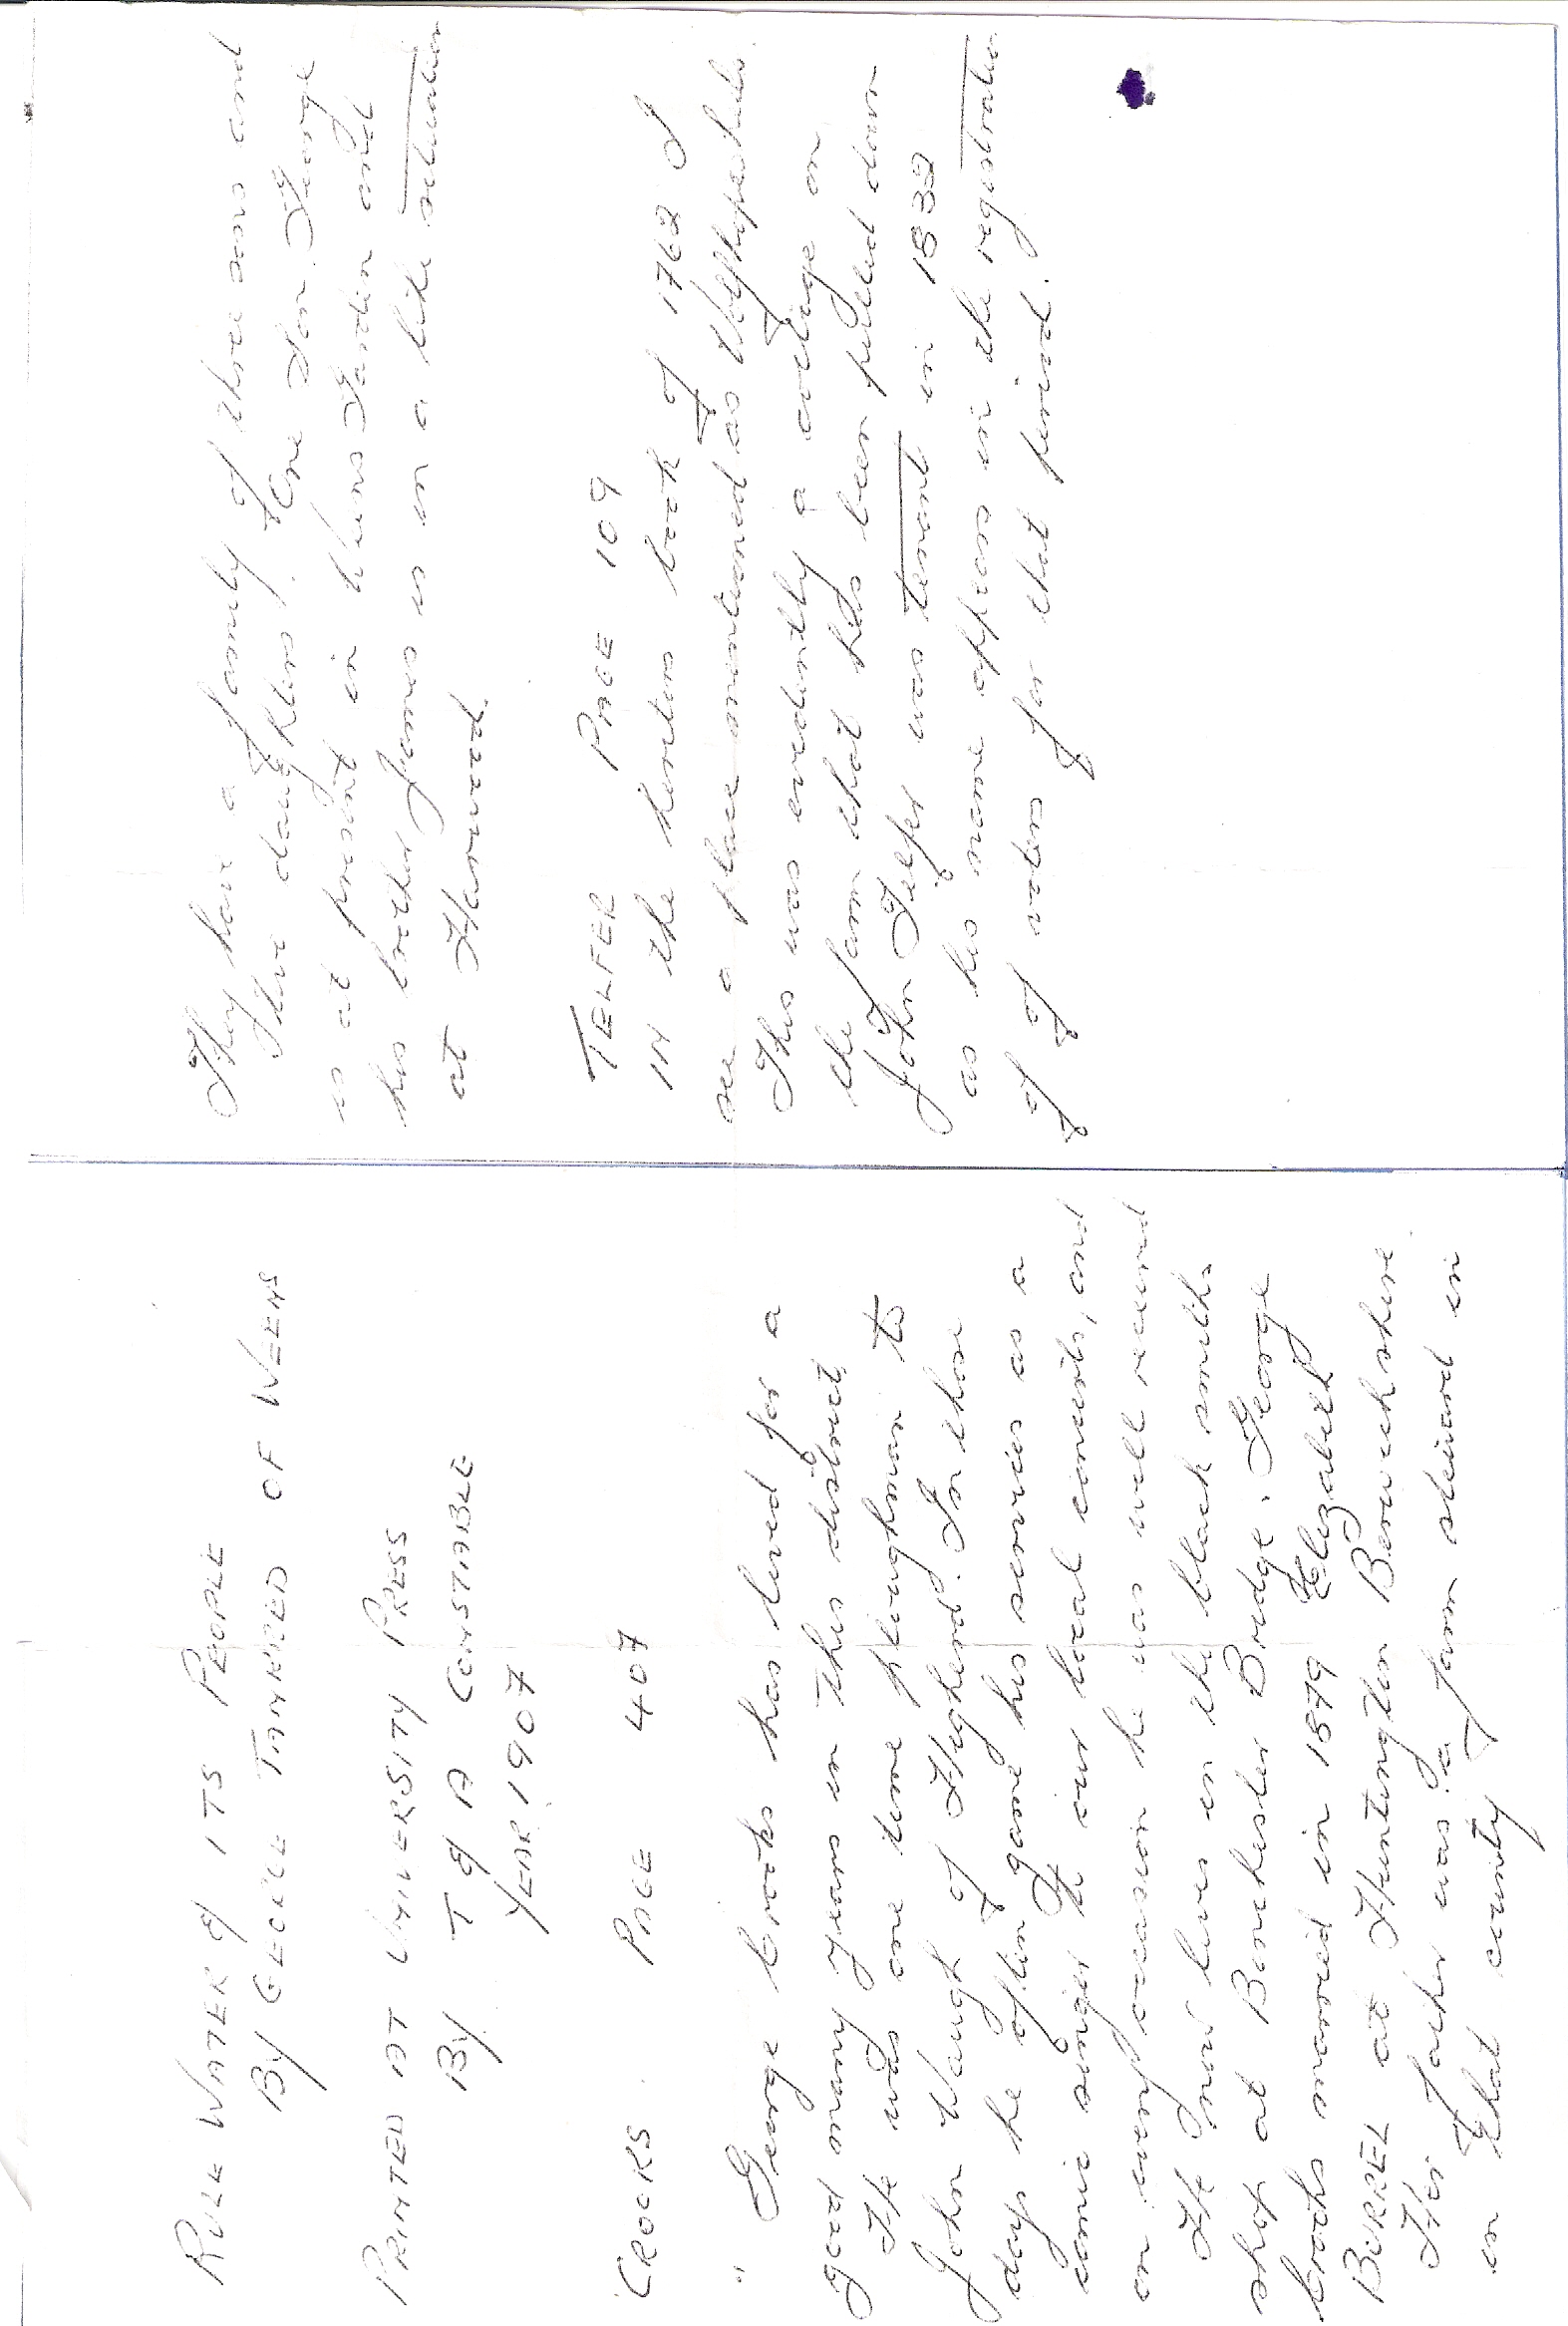 RULE WATER & ITS PEOPLE
BY GEORGE TANCRED OF WEENS
PRINTED AT UNIVERSITY PRESS
BY T & A CONSTABLE
YEAR 1907
CROOKS. PAGE 407
" George Crooks has lived for a
good many years in this district,
He was one time ploughman to
John Waugh of Highend. In those
days he often gave his services as a
comic singer to our local concerts, and
on every occasion he was well received
He now lives in the black smiths
shop at Bonchester Bridge. George
Crooks married in 1879 Elizabeth
BURREL at Huntington Berwickshire
Her father was a farm steward in
in that county
They have a family of three sons and
three daughters. One Son George
is at present in Weens Garden and
his brother James is in a like situation
at Harwood.
TELFER PAGE 109
IN the heritors book of 1762 I
see a place mentioned as Wolfhopelnhule.
This was evidently a cottage on
the farm that has been pulled down
John Telfer was tenant in 1832
as his name appears in the registration
of of voters for that period.